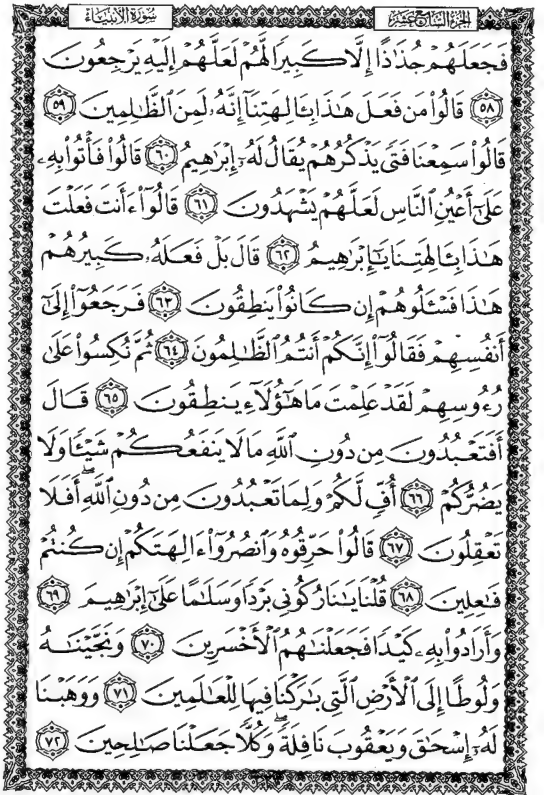 الجزء السابع عشر
سورة الأنبياء
فَجَعَلَهُمْ جُذَٰذًا إِلَّا كَبِيرًا لَّهُمْ لَعَلَّهُمْ إِلَيْهِ يَرْجِعُونَ
٥٨ قَالُوا۟ مَن فَعَلَ هَٰذَا بِـَٔالِهَتِنَآ إِنَّهُۥ لَمِنَ ٱلظَّٰلِمِينَ ٥٩
قَالُوا۟ سَمِعْنَا فَتًى يَذْكُرُهُمْ يُقَالُ لَهُۥٓ إِبْرَٰهِيمُ ٦٠ قَالُوا۟ فَأْتُوا۟ بِهِۦ
عَلَىٰٓ أَعْيُنِ ٱلنَّاسِ لَعَلَّهُمْ يَشْهَدُونَ ٦١ قَالُوٓا۟ ءَأَنتَ فَعَلْتَ
هَٰذَا بِـَٔالِهَتِنَا يَٰٓإِبْرَٰهِيمُ ٦٢ قَالَ بَلْ فَعَلَهُۥ كَبِيرُهُمْ
هَٰذَا فَسْـَٔلُوهُمْ إِن كَانُوا۟ يَنطِقُونَ ٦٣ فَرَجَعُوٓا۟ إِلَىٰٓ
أَنفُسِهِمْ فَقَالُوٓا۟ إِنَّكُمْ أَنتُمُ ٱلظَّٰلِمُونَ ٦٤ ثُمَّ نُكِسُوا۟ عَلَىٰ
رُءُوسِهِمْ لَقَدْ عَلِمْتَ مَا هَٰٓؤُلَآءِ يَنطِقُونَ ٦٥ قَالَ
أَفَتَعْبُدُونَ مِن دُونِ ٱللَّهِ مَا لَا يَنفَعُكُمْ شَيْـًٔا وَلَا
يَضُرُّكُمْ ٦٦ أُفٍّ لَّكُمْ وَلِمَا تَعْبُدُونَ مِن دُونِ ٱللَّهِ ۖ أَفَلَا
تَعْقِلُونَ ٦٧ قَالُوا۟ حَرِّقُوهُ وَٱنصُرُوٓا۟ ءَالِهَتَكُمْ إِن كُنتُمْ
فَٰعِلِينَ ٦٨ قُلْنَا يَٰنَارُ كُونِى بَرْدًا وَسَلَٰمًا عَلَىٰٓ إِبْرَٰهِيمَ ٦٩
وَأَرَادُوا۟ بِهِۦ كَيْدًا فَجَعَلْنَٰهُمُ ٱلْأَخْسَرِينَ ٧٠ وَنَجَّيْنَٰهُ
وَلُوطًا إِلَى ٱلْأَرْضِ ٱلَّتِى بَٰرَكْنَا فِيهَا لِلْعَٰلَمِينَ ٧١ وَوَهَبْنَا
لَهُۥٓ إِسْحَٰقَ وَيَعْقُوبَ نَافِلَةً ۖ وَكُلًّا جَعَلْنَا صَٰلِحِينَ ٧٢